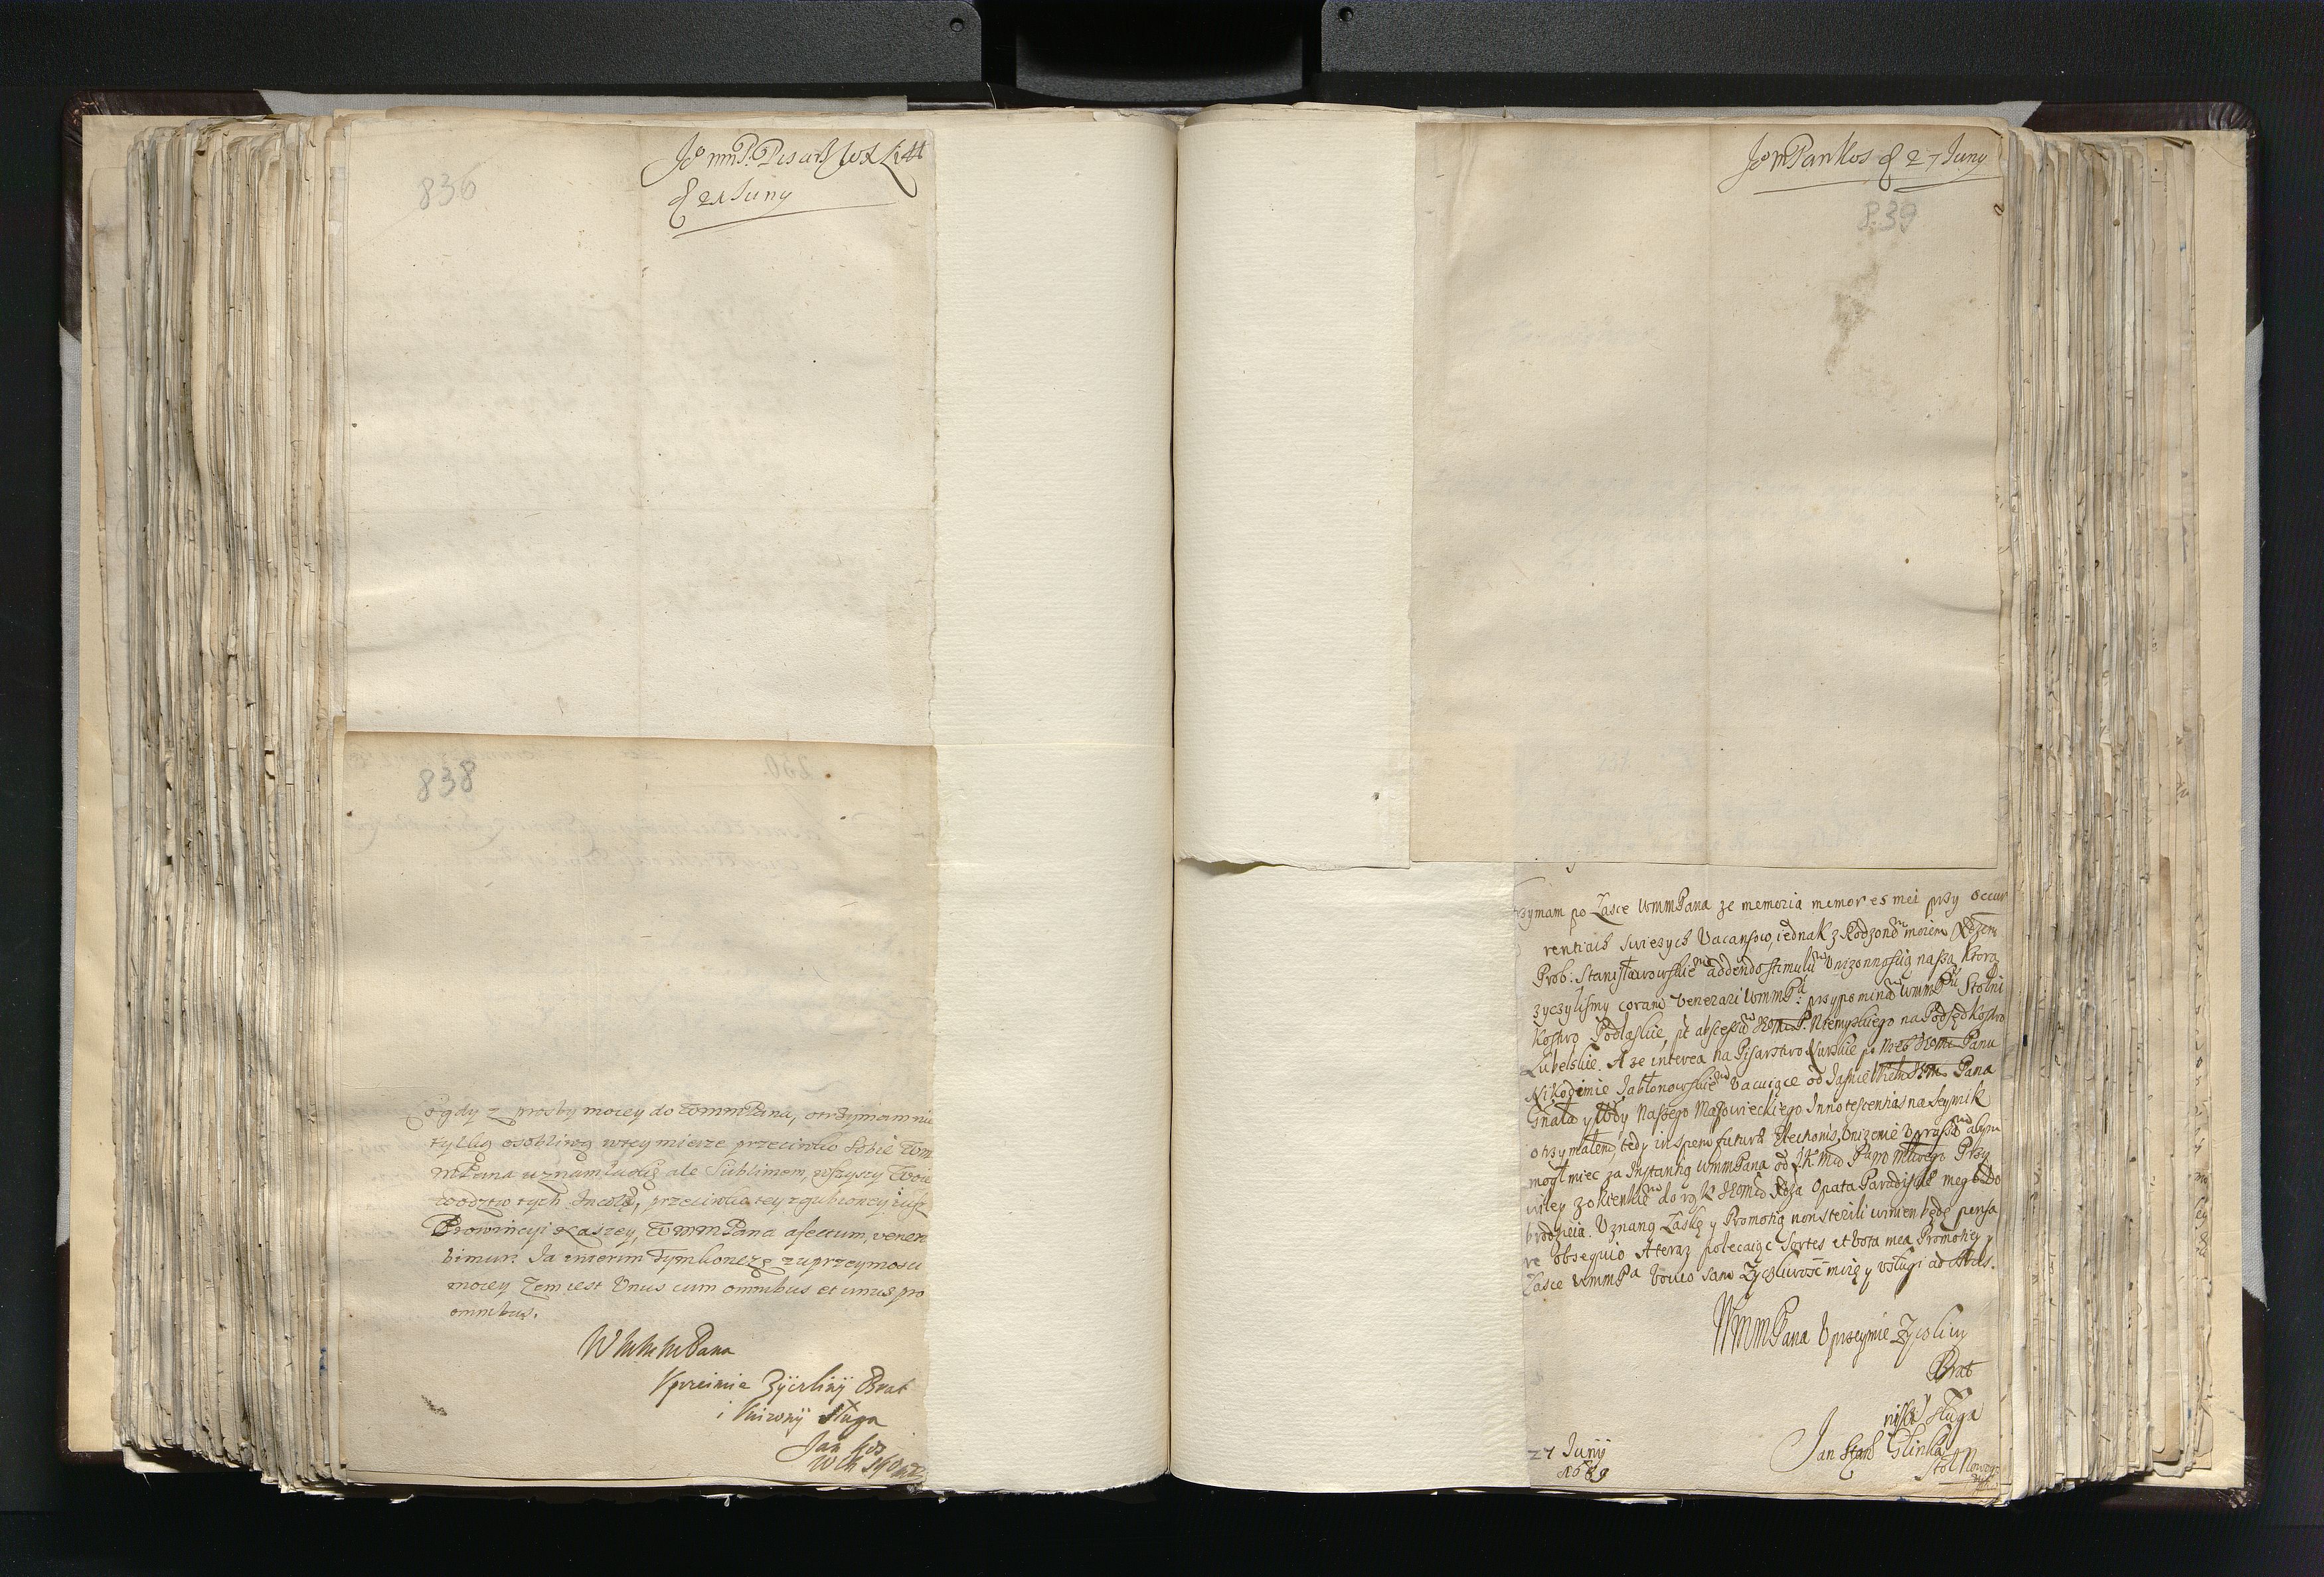 Jo mmP. Pisarz WX Litt
d 21 Juny
836
838
250.
Co gdy z prosby moiey do WmmPana, otrzymam nie
tylkę osobliwą wtey mierze przeciwko sobie Wm
mPana uznam łaskę ale Sublimem, zeszyszy Woie
wodztw tych Incolę, przeciwko tey zgubioney iusz
Prowincyi Naszey, WmmPana afectum, vener
bimur. Ja interim Symbonezę zuprzeymosci
moiey Zem iest Unus cum omnibus et unus pro
omnibus.
WmmmPana
Vprzeimie Zyczliwy Brat
i Unizony sługa
Jan Kos
Jo mPan Kos d 27 Juny
839
Trzymam po Łasce WmmPana ze memoria memor es mei przy occur
rentiach swiezych Vacansow, iednak z Rodzond moiem Xdzem
Prob: Stanisławowskie addendo stimulu Unizonnosiią naszą Ktorą
zyczylismy coram venerari WmmPa: przypomina WmmPu Stolni
Kostwo Podlaskie, pt abscessu JKom P. Ntemyskiego na Podsędkostwo
Lubelskie. A ze interea na Pisarstwo Nurskie po Panu
Nikodimie Jabłonowskie Vacuiące od Jasnie Wielm Jeom Pana
Gnata y Wdy Naszego Mazowieckiego Innotescentias na Seymik
otrzymałem, tedy in spem futura Electionis, Unizenie Upraszam abym
mogł miec za Instantią WmmPana od JKMci Pana Młwego Przy
wiley z okienkie do rąk JeoMci Xdza Opata Paradiskie mego Do
brodzieia. Uznaną Łaskę y Promotią non sterili winien będę pensa
re obsequio. A teraz polecaiąc Sortes et vota mea Promotiey y
Łasce WmmPa Voueo sam Zyczliwosc moię y vsługi ad Aras.
WmmPana Uprzeymie Zyczliwy
Brat
niski Sługa
Jan Stan Glinka
Stol Nowog
27 Junÿ
1689